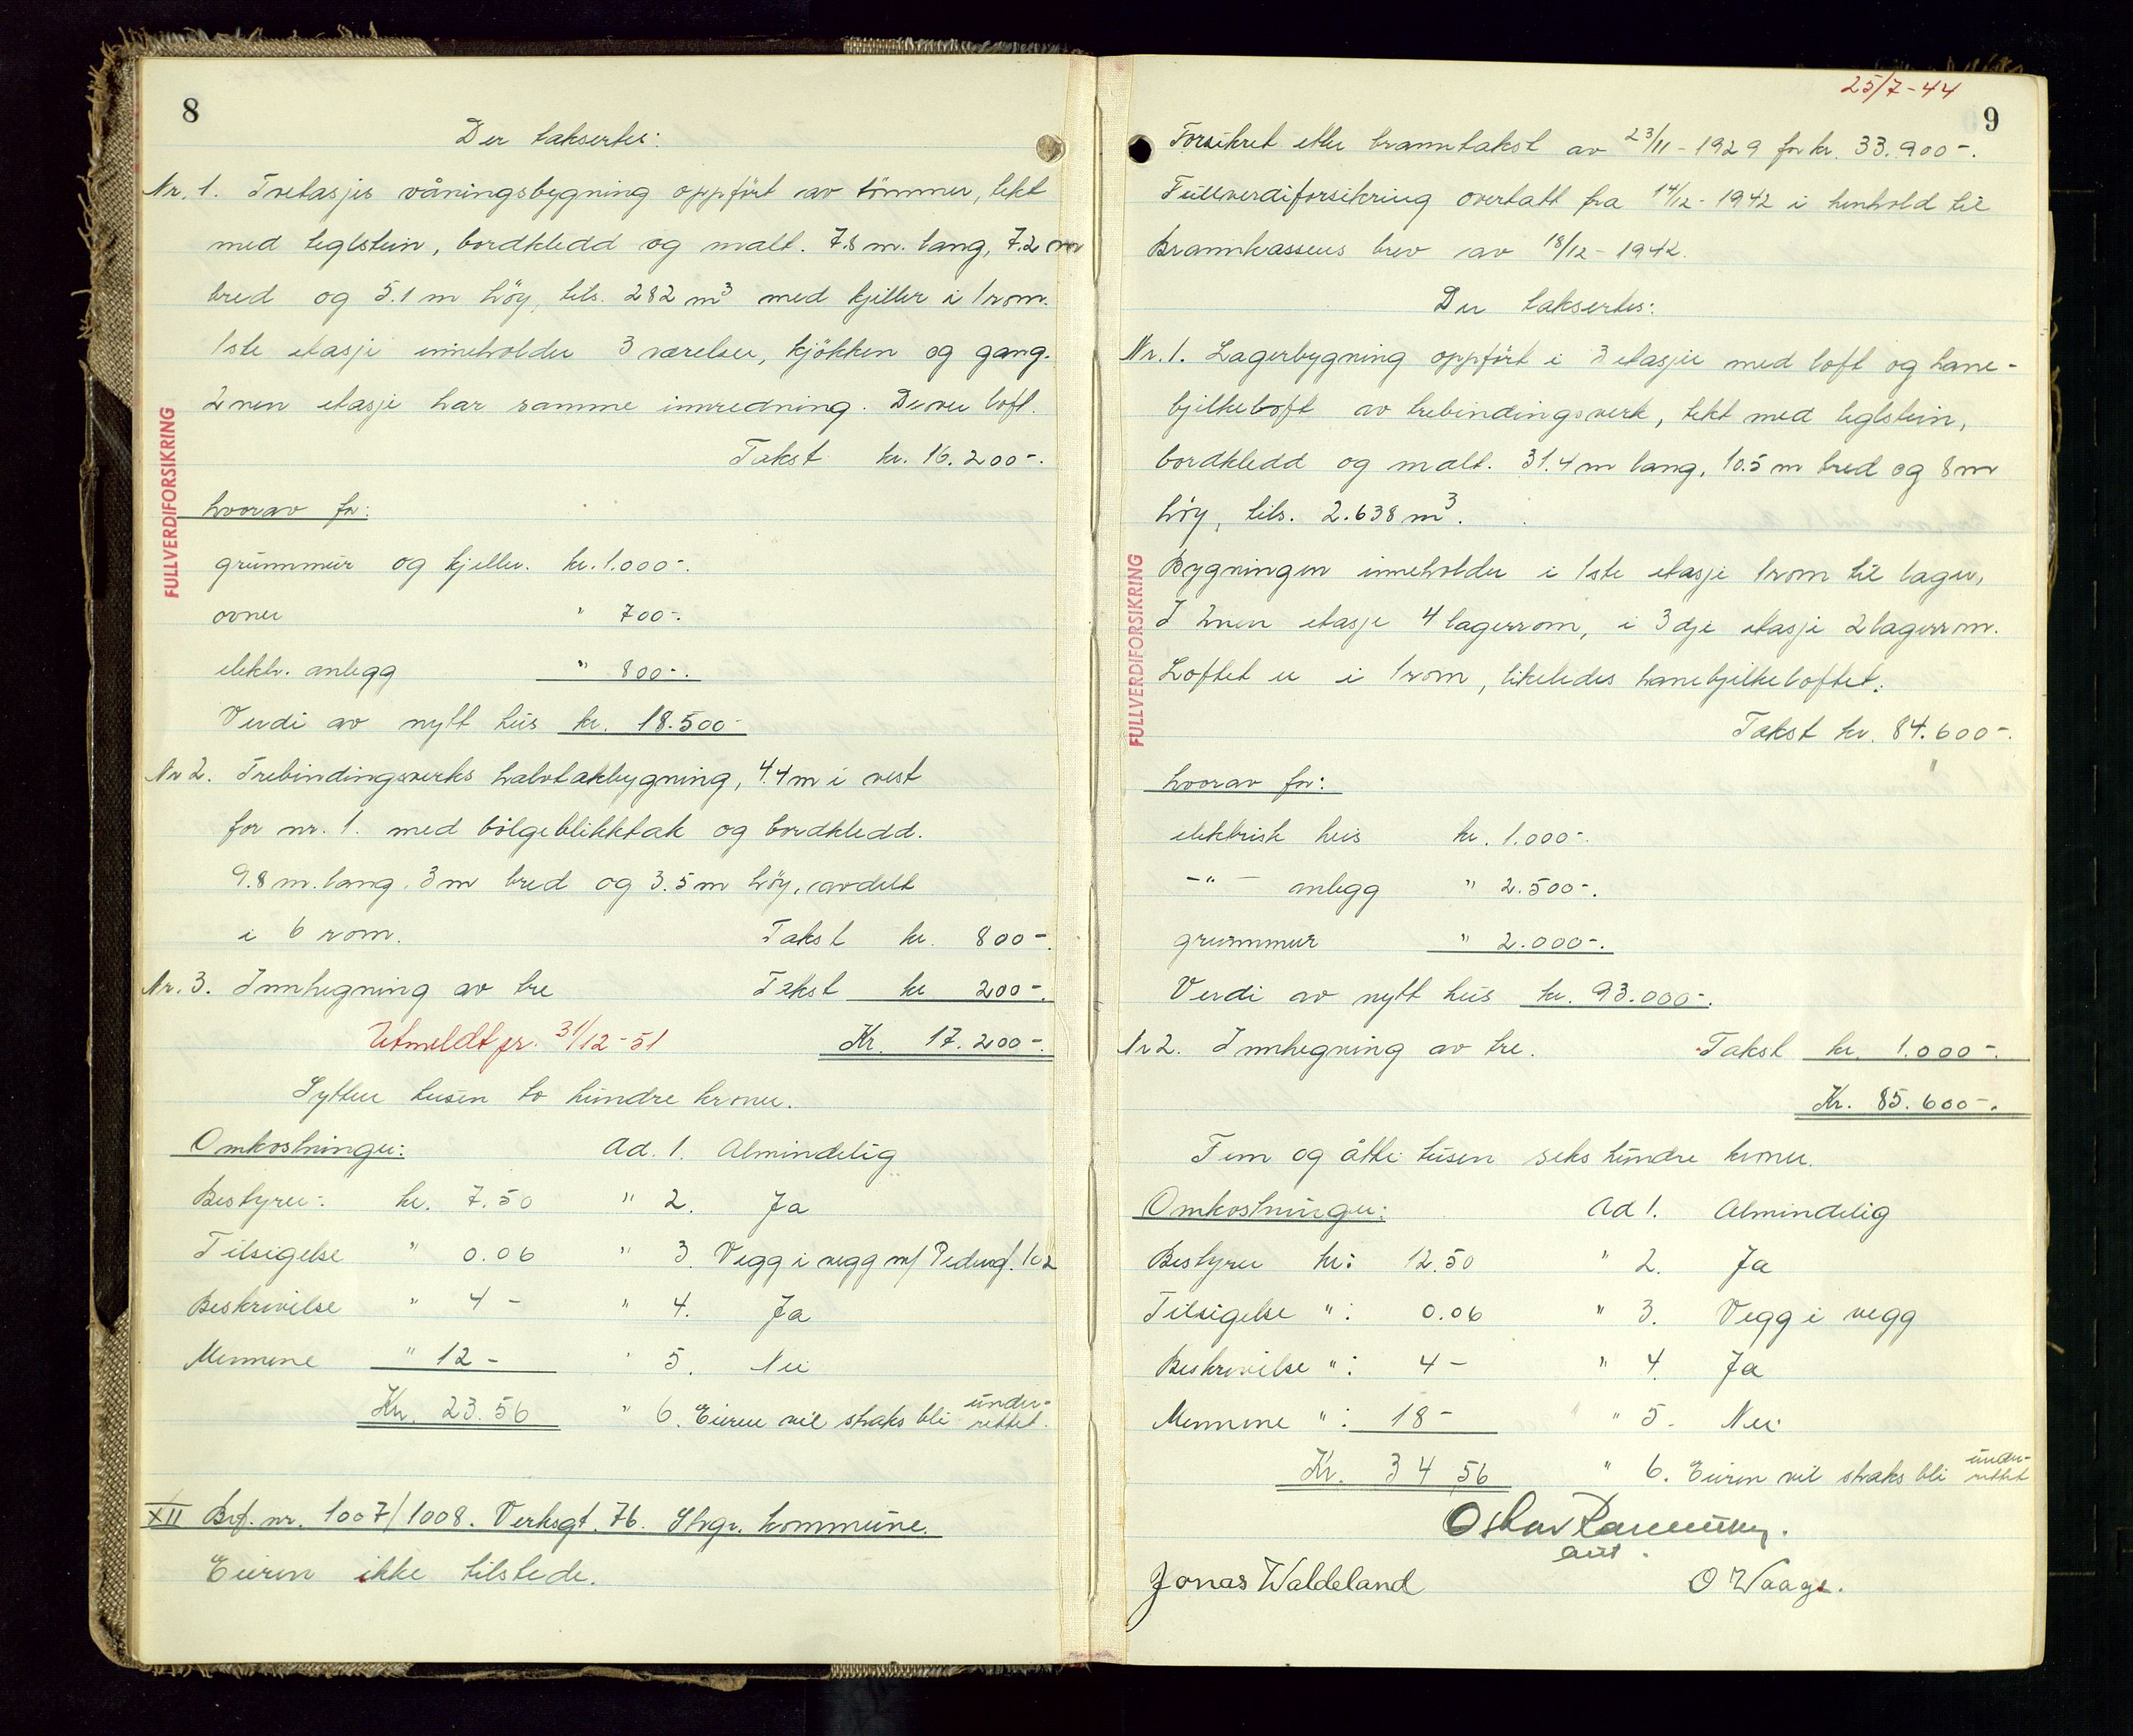 8
Der taksertes:
Nr. 1. Toetasjes våningsbygning oppført av tömmer, tekt
med teglstein, bordkledd og malt. 7.8 m. lang, 7.2 m
bred og 5.1 m höy, tils. 282 m³ med kjeller i 1 rom.
1ste etasje inneholder 3 værelser, kjökken og gang.
2nen etasje har samme innredning. Derover loft.
Takst kr. 16.200-.
hvorav for:
grunnmur og kjeller. kr. 1.000-.
ovner " 700-.
elektr. anlegg " 800-.
Verdi av nytt hus kr. 18.500-
Nr 2. Trebindingsverks halvtakbygning, 4.4 m i vest
for nr. 1. med bölgeblikktak og bordkledd.
9.8 m. lang. 3 m bred og 3.5 m höy, avdelt
i 6 rom. Takst kr. 800-.
Nr. 3. Innhegning av tre Takst kr 200-.
Utmeldt pr. 31/12-51 Kr. 17.200-.
Sytten tusen to hundre kroner.
Omkostninger: Ad. 1. Almindelig
Bestyrer: kr. 7.50 " 2. Ja
Tilsigelse " 0.06 " 3. Vegg i vegg m/ Pedersg. 102
Beskrivelse " 4- " 4. Ja
Mennene " 12- " 5. Nei
Kr. 23.56 " 6. Eieren vil straks bli under-
rettet.
XII Brf. nr. 1007/1008. Verksgt. 76. Stvgr. kommune.
Eieren ikke tilstede.
FULLVERDIFORSIKRING
25/7-44
9
Forsikret etter branntakst av 23/11-1929 for kr. 33.900-.
Fullverdiforsikring overtatt fra 14/12-1942 i henhold til
Brannkassens brev av 18/12-1942.
Der taksertes:
Nr. 1. Lagerbygning oppført i 3 etasjer med loft og hane-
bjelkeloft av trebindingsverk, tekt med teglstein,
bordkledd og malt. 31.4 m lang, 10.5 m bred og 8 m
höy, tils. 2.638 m³.
Bygningen inneholder i 1ste etasje 1 rom til lager,
I 2nen etasje 4 lagerrom, i 3dje etasje 2 lagerrom.
Loftet er i 1 rom, likeledes hanebjelkeloftet.
Takst kr. 84.600-.
hvorav for:
elektrisk heis kr. 1.000-.
-"- anlegg " 2.500-.
grunnmur " 2.000-.
Verdi av nytt hus kr. 93.000-.
Nr 2. Innhegning av tre. Takst kr. 1.000-.
Kr. 85.600-.
Fem og åtti tusen seks hundre kroner.
Omkostninger: Ad 1. Almindelig
Bestyrer kr: 12.50 " 2. Ja
Tilsigelse ": 0.06 " 3. Vegg i vegg
Beskrivelse ": 4- " 4. Ja
Mennene ": 18- " 5. Nei
Kr. 34 56 " 6. Eieren vil straks bli under-
rettet
Jonas Waldeland O Waage.
FULLVERDIFORSIKRING